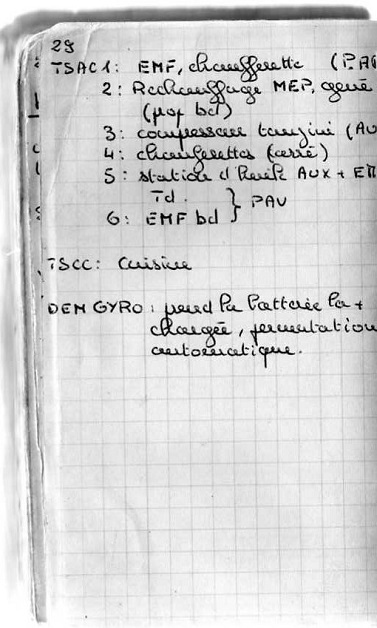 29
TSAC1: EMF, chaufferette (PAV
2: Rechauffage MEP, géné
(pop bd)
3: compresseur (AU
4: chaufferettes (carré)
5: station d'huile AUX + ETT
Td. } PAV
6: EMF bd
TSCC: Cuisine
DEM GYRO: prend la batterie la +
chargée, permutation
automatique.